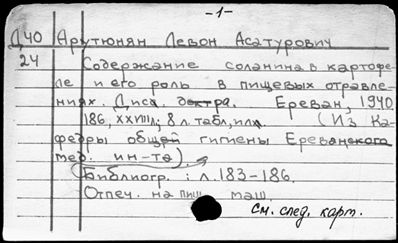 -1-
Д40 Арутюнян Левон Асатурович
24 Содержание соланина в картофе-
ле и его роль в пищевых отравле-
ниях. Дисс. доктра. Ереван, 1940
186, XXVIII л; 8 л. табл, илл. (Из Ка-
федры общей гигиены Ереванского
мед. ин-та).
(Библиогр.: л. 183-186.
Отпеч. на пиш. маш
См. след. карт.